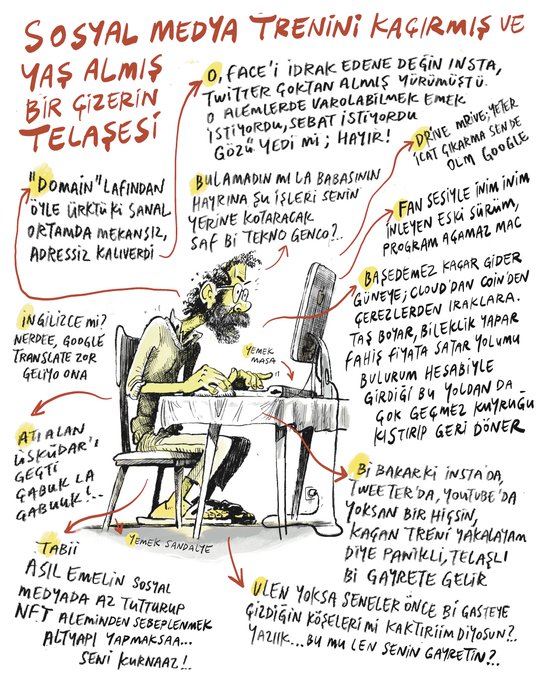 SOSYAL MEDYA TRENİNİ KAÇIRMIŞ VE
YAŞ ALMIŞ
BİR ÇİZERİN
TELAŞESİ
O, FACE'İ İDRAK EDENE DEĞİN INSTA,
TWITTER ÇOKTAN ALMIŞ YÜRÜMÜŞTÜ.
O ALEMLERDE VAROLABİLMEK EMEK
İSTİYORDU, SEBAT İSTİYORDU
GÖZÜ YEDİ Mİ; HAYIR!
DRİVE MRİVE; YETER
İCAT ÇIKARMA SEN DE
OLM GOOGLE
"DOMAIN" LAFINDAN
ÖYLE ÜRKTÜ Kİ SANAL
ORTAMDA MEKANSIZ,
ADRESSİZ KALIVERDİ
BULAMADIN MI LA BABASININ
HAYRINA ŞU İŞLERİ SENİN
YERİNE KOTARACAK
SAF Bİ TEKNO GENCO?..
FAN SESİYLE İNİM İNİM
İNLEYEN ESKİ SÜRÜM,
PROGRAM AÇAMAZ MAC
BAŞEDEMEZ KAÇAR GİDER
GÜNEYE; CLOUD'DAN COİN'DEN
ÇEREZLERDEN IRAKLARA.
TAŞ BOYAR, BİLEKLİK YAPAR
FAHİŞ FİYATA SATAR YOLUMU
BULURUM HESABIYLE
GİRDİĞİ BU YOLDAN DA
ÇOK GEÇMEZ KUYRUĞU
KISTIRIP GERİ DÖNER
İNGİLİZCE Mİ?
NERDEE, GOOGLE
TRANSLATE ZOR
GELİYO ONA
YEMEK
MASA
ATI ALAN
ÜSKÜDAR'I
GEÇTİ
ÇABUK LA
ÇABUUK!..
Bİ BAKAR Kİ INSTA'DA,
TWEETER'DA, YOUTUBE'DA
YOKSAN BİR HİÇSİN,
KAÇAN TRENİ YAKALAYAM
DİYE PANİKLİ, TELAŞLI
Bİ GAYRETE GELİR
YEMEK SANDALYE
TABİİ
ASIL EMELİN SOSYAL
MEDYADA AZ TUTTURUP
NFT ALEMİNDEN SEBEPLENMEK
ALTYAPI YAPMAKSAA...
SENİ KURNAAZ!..
ULEN YOKSA SENELER ÖNCE Bİ GASTEYE
ÇİZDİĞİN KÖŞELERİ Mİ KAKTIRİİM DİYOSUN?..
YAZIIK... BU MU LEN SENİN GAYRETİN?..